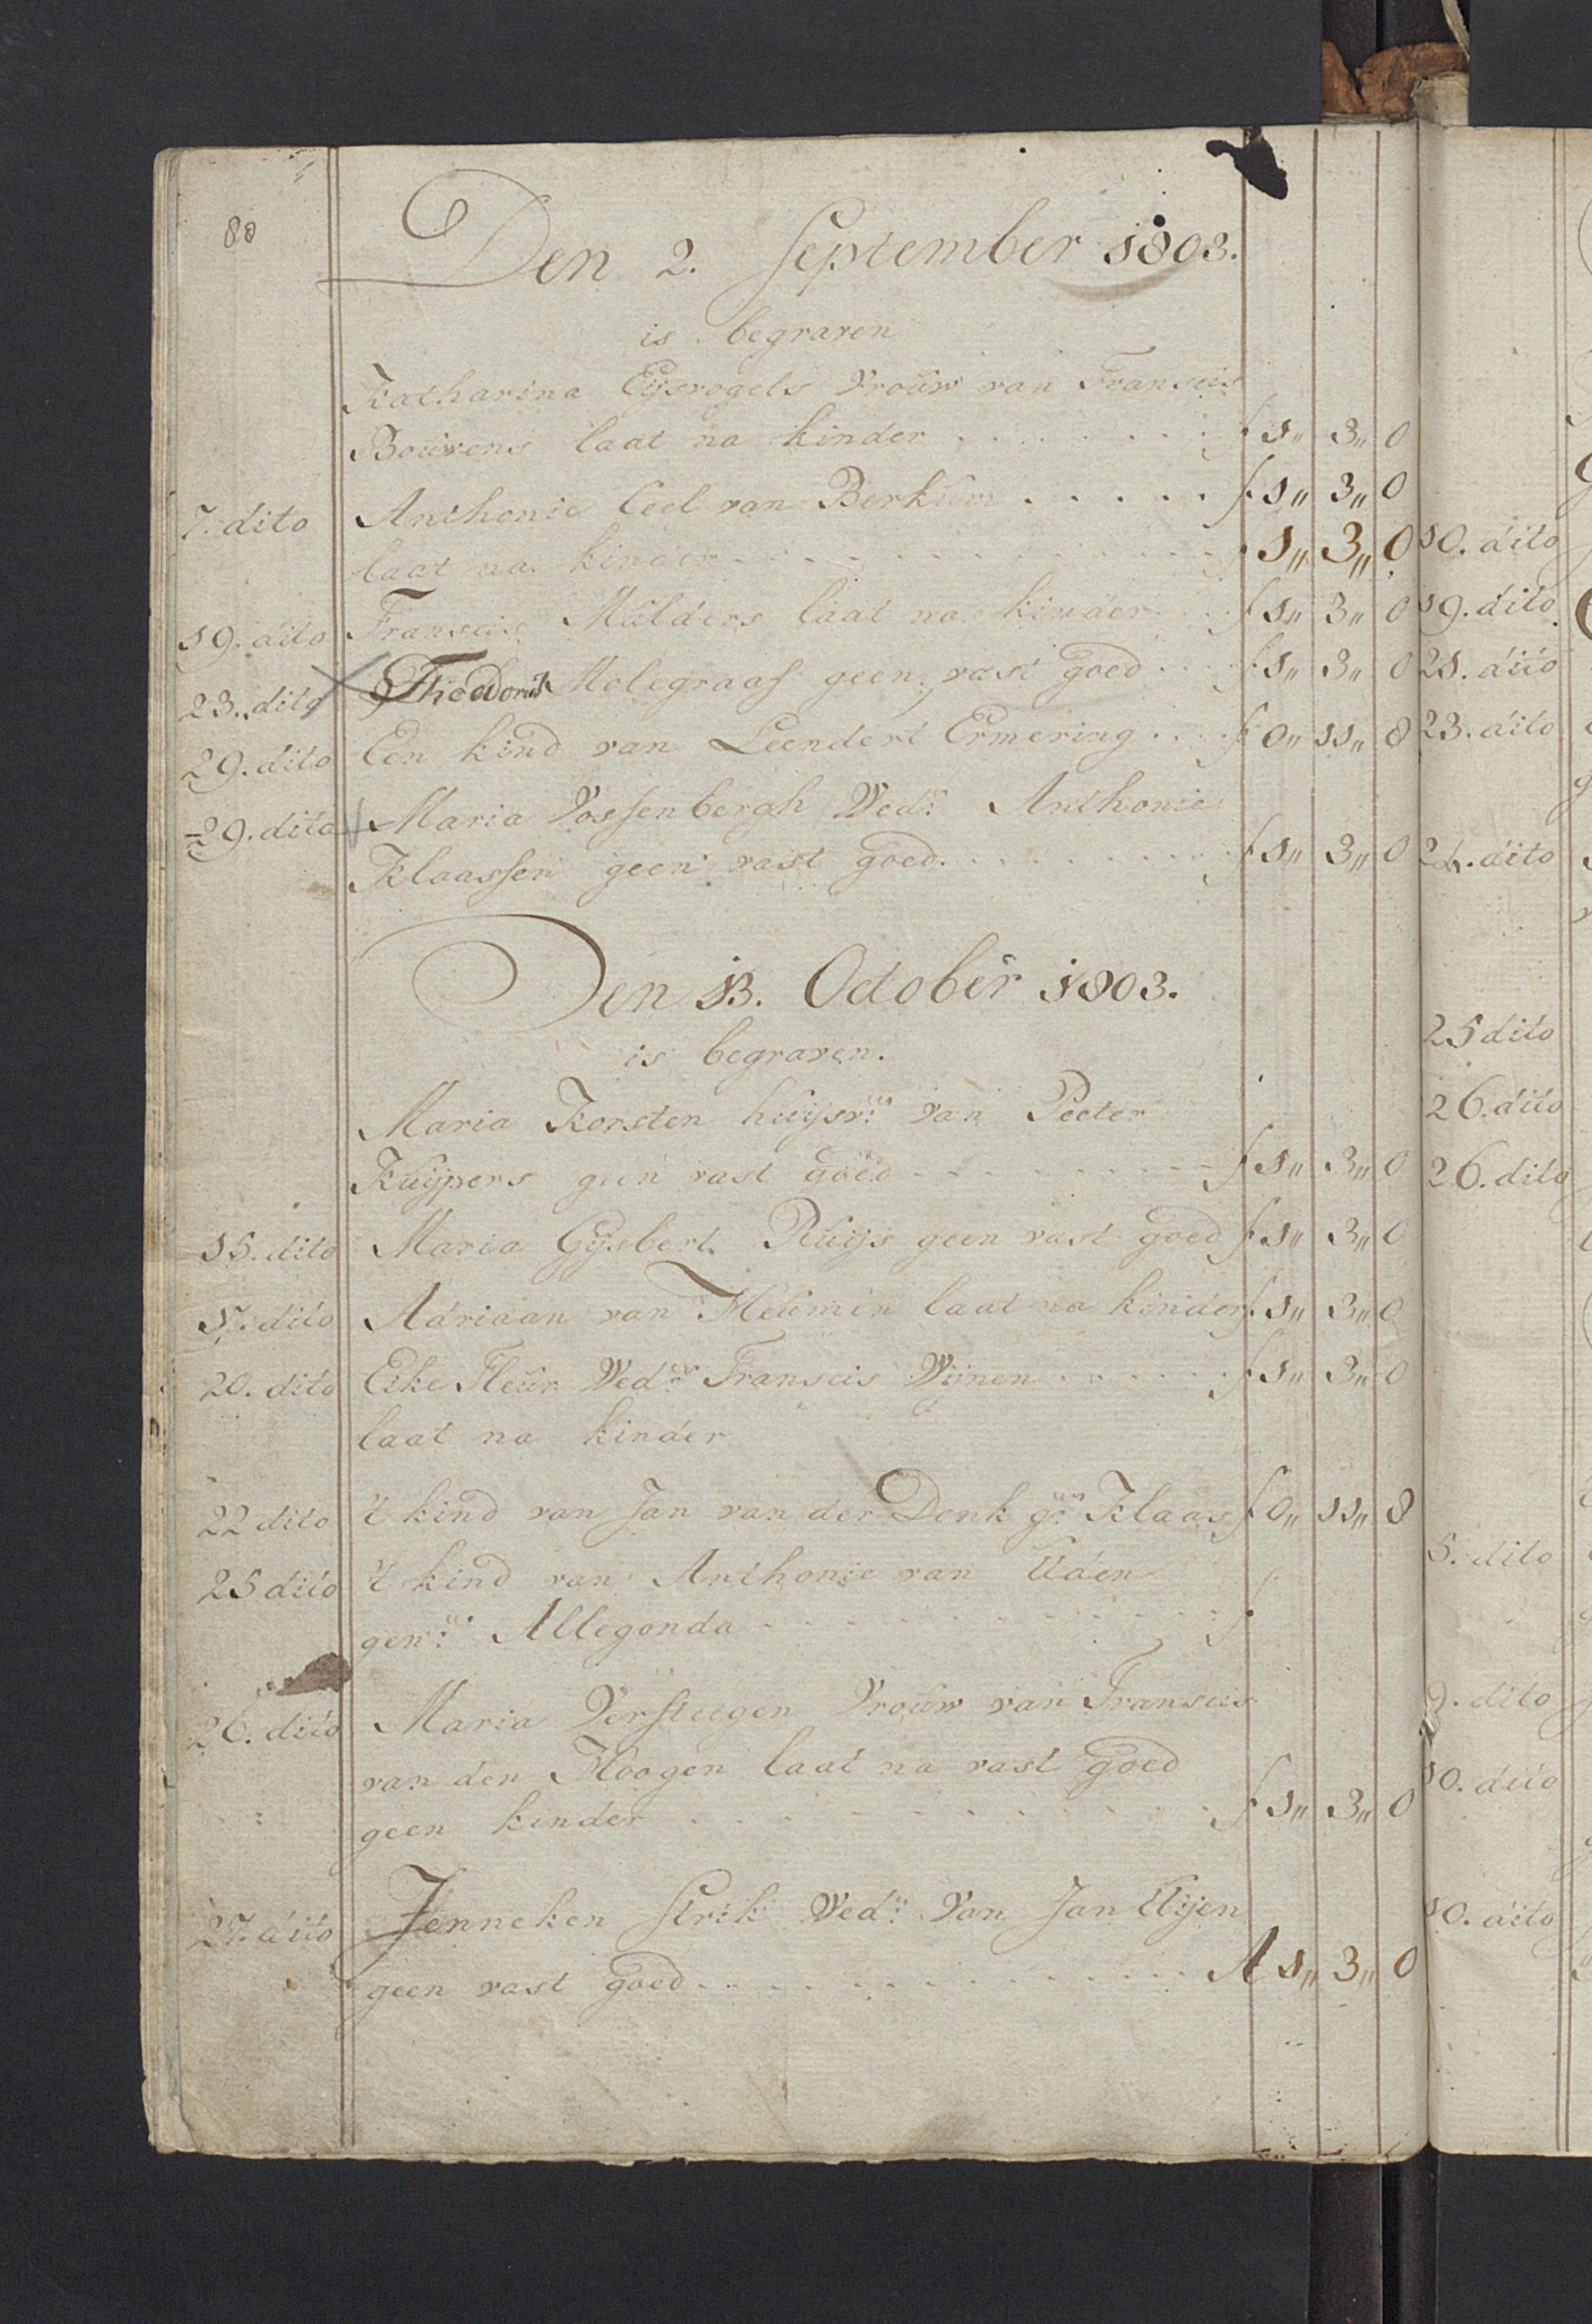 80
Den 2. September 1803.
is begraven
Katharina Eijsvogels Vrouw van Fransis
Bouwens laat na kinder . . . . . . . f 1„ 3„ 0
7. dito Anthonie Ceel van Berkum . . . . . f 1„ 3„ 0
laat na kinder . . . . . . . . . . 1„ 3„ 0
19. dito Fransis Mulders laat na kinder . . f 1„ 3„ 0
23. dito Theodorus Molegraaf geen vast goed . . . f 1„ 3„ 0
29. dito Een kind van Leendert Ermering . . . . f 0„ 11„ 8
29. dito Maria Vossenbergh Wed: Anthonie
Klaassen geen vast goed . . . . . . . . f 1„ 3„ 0
Den 13. October 1803.
is begraven.
Maria Korsten huijsv: van Peeter
Kuijpers geen vast goed . . . . . . . . f 1„ 3„ 0
15. dito Maria Gijsbert Ruijs geen vast goed f 1„ 3„ 0
17. dito Adriaan van Heumen laat na kinder f 1„ 3„ 0
20. dito Eike Fleur Wed: Fransis Wijnen . . . . . . f 1„ 3„ 0
laat na kinder
22 dito 't kind van Jan van der Donk g: Klaas f 0„ 11„ 8
25 dito 't kind van Anthonie van Uden
gen: Allegonda . . . . . . . . . . f
26. dito Maria Versteegen Vrouw van Fransis
van den Hoogen laat na vast goed
geen kinder . . . . . . . . . . f 1„ 3„ 0
27. dito Jenneken Strik Wed: Van Jan Uijen
geen vast goed . . . . . . . . . . . . . f 1„ 3„ 0
10. dito
19. dito
21. dito
23. dito
24. dito
25 dito
26. dito
26. dito
5. dito
9. dito
10. dito
10. dito